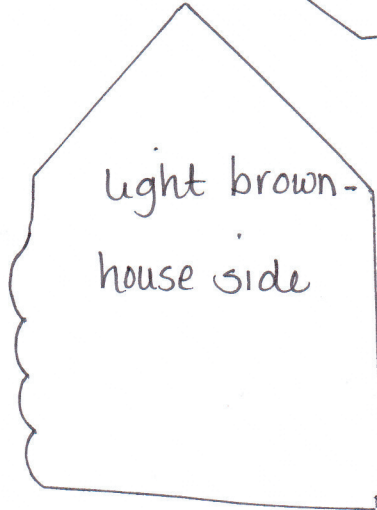 light brown-
house side